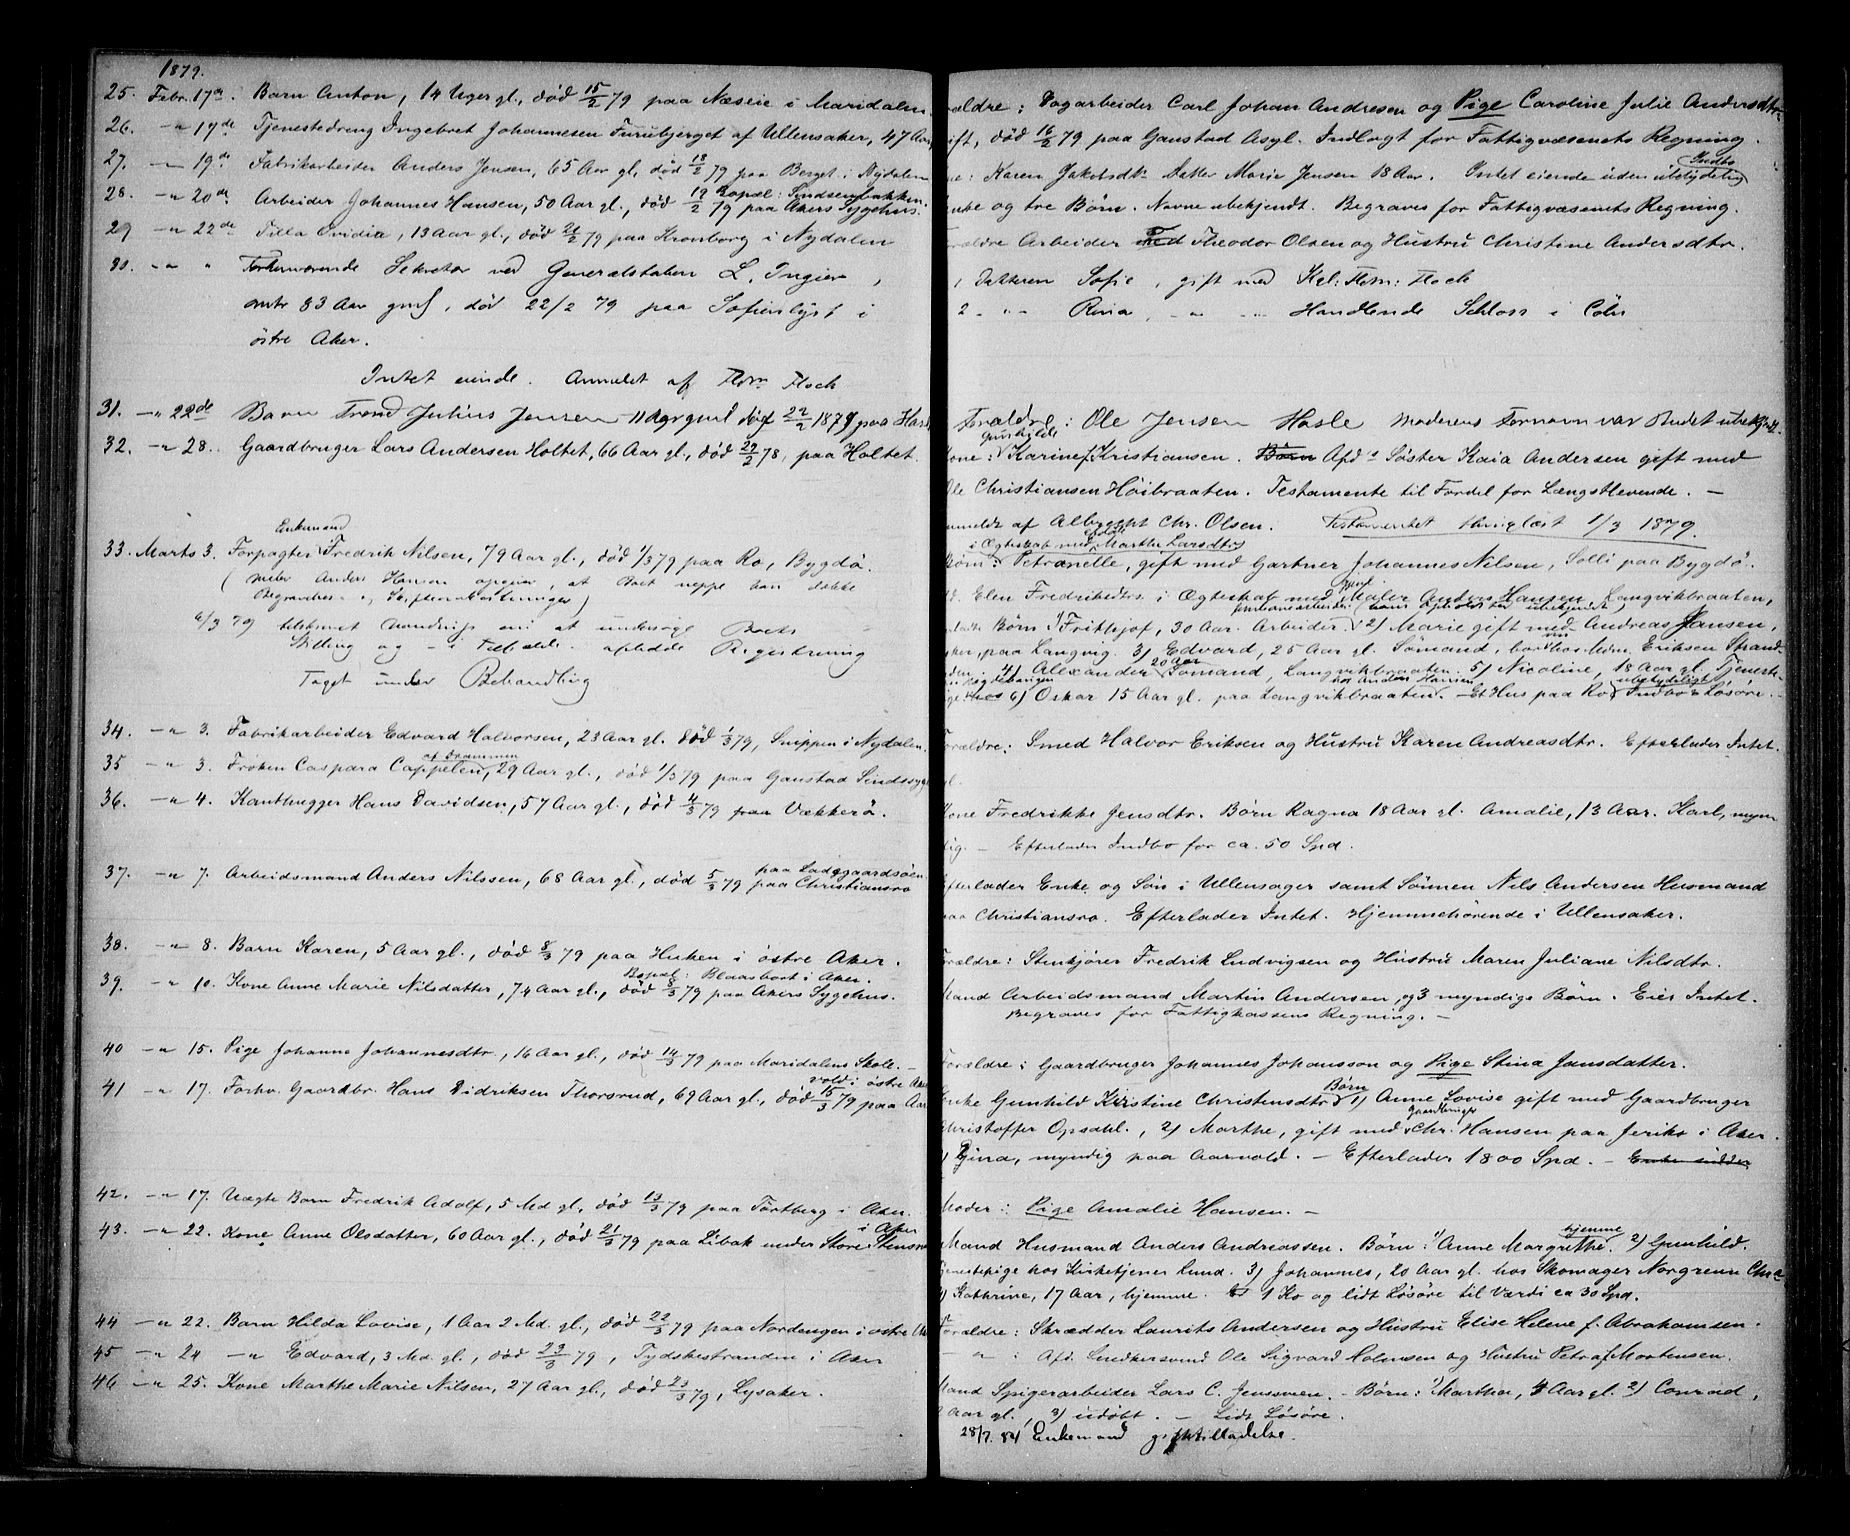 1879.
25. Febr. 17de. Barn Anton, 14 Uger gl., død 15/2 79 paa Næseie i Maridalen.
26. -"- 17de Tjenestedreng Ingebret Johannesen Furubjerget af Ullensaker, 47 Aar
27. -"- 19de Fabrikarbeider Anders Jensen, 65 Aar gl. død 18/2 79 paa Berget i Nydalen
28. -"- 20de Arbeider Johannes Hansen, 50 Aar gl., død 19/2 79 paa Akers Sygehus. Bopæl: Sindsenbakken.
29 -"- 22de Tilla Ovidia, 13 Aar gl., død 21/2 79 paa Kronborg i Nydalen
30. -"- " Forhenværende Sekretær ved Generalstaben L. Ingier,
83 Aar gml, død 22/2 79 paa Sofienlyst i
østre Aker.
Intet eiende. Anmeldt af Floch
31. -"- 22de Barn Trond Julius Jensen 11 Aar gml død 22/2 1879 paa Hasl
32. -"- 28. Gaardbruger Lars Andersen Holtet, 66 Aar gl., død 27/2 78, paa Holtet.
Enkemand
33. Marts 3. Forpagter Fredrik Nilsen, 79 Aar gl., død 1/3 79 paa Ro, Bygdø.
(Maler Anders Hansen opgiver, at Boet neppe kan dække
Begravelses- og Skifteomkostninger)
6/3 79 at undersøge Boets
Stilling og - i Tilfælde - afholde Registrering
Taget under Behandling
34. -"- 3. Fabrikarbeider Edvard Halvorsen, 23 Aar gl. død 1/3 79, Snippen i Nydalen.
af Drammen
35 -"- 3. Frøken Caspara Cappelen, 29 Aar gl., død 1/3 79 paa Gaustad Sindssyg
36. -"- 4. Kanthugger Hans Davidsen, 57 Aar gl., død 4/3 79 paa Vækkerø.
37. -"- 7. Arbeidsmand Anders Nilssen, 68 Aar gl., død 5/3 79 paa Christiansro paa Ladegaardsøen
38. -"- 8. Barn Karen, 5 Aar gl., død 8/3 79 paa Huken i østre Aker.
Bopæl: Blaasbort i Aker.
39. -"- 10. Kone Anne Marie Nilsdatter, 74 Aar gl., død 8/3 79 paa Akers Sygehus.
40 -"- 15. Pige Johanne Johannesdtr, 16 Aar gl., død 14/3 79 paa Maridalens Skole. -
vold i østre Aker
41 -"- 17. Forhv. Gaardbr. Hans Didriksen Thorsrud, 69 Aar gl., død 15/3 79 paa Aar
42. -"- 17. Uægte Barn Fredrik Adolf, 5 Md. gl., død 13/3 79 paa Tortberg i Aker.
i Aker
43. -"- 22. Kone Anne Olsdatter, 60 Aar gl., død 21/3 79 paa Libak under Store Stensr
44 -"- 22. Barn Hilda Lovise, 1 Aar 2 Md. gl., død 22/3 79 paa Nordengen i østre Ak
45 -"- 24 -"- Edvard, 3 Md. gl., død 23/3 79, Tydskestranden i Aker
46 -"- 25. Kone Marthe Marie Nilsen, 27 Aar gl., død 23/3 79, Lysaker.
ældre: Dagarbeider Carl Johan Andresen og Pige Caroline Julie Andersdtr
ift, død 16/2 79 paa Gaustad Asyl. Indlagt for Fattigvæsenets Regning.
ne: Karen Jakobsdtr. Datter Marie Jensen 18 Aar. Intet eiende uden ubetydelig Indbo
nke og tre Børn. Navne ubekjendt. Begraves for Fattigvæsenets Regning.
orældre Arbeider Theodor Olsen og Hustru Christine Andersdtr.
1 Datteren Sofie, gift med Floch
2. -"- Rina, -"- -"- Handlende Schloss i Cöln
Forældre: Ole Jensen Hasle Moderens Fornavn var Budet ubekjendt.
Kone: Gunhilde Karine f. Kristiansen. Børn Afdes Søster Kaia Andersen gift med
Ole Christiansen Høibraaten. Testamente til Fordel for Længstlevende. -
nmeldt af Chr. Olsen. Testamentet thinglæst 1/3 1879.
i Ægteskab med afdøde Marthe Larsdtr
Børn: Petronelle, gift med Gartner Johannes Nilsen, Solli paa Bygdø.
Elen Fredriksdtr. i Ægteskab med Maler Anders Hansen, Langvikbraaten,
Børn 1) Frithjof, 30 Aar. Arbeider. 2) Marie gift med Andreas Jansen,
paa Langvig. 3) Edvard, 25 Aar gl. Sømand, Eriksen Strand
4) Alexander 20 Aar Sømand, Langvikbraaten. 5) Nicoline, 18 Aar gl. Tjeneste
hos 6) Oskar 15 Aar gl. paa Langvikbraaten hos Anders Hansen. - Et Hus paa Ro, ubetydeligt Indbo & Løsøre. -
Forældre: Smed Halvor Eriksen og Hustru Karen Andreasdtr. Efterlader Intet.
Kone Fredrikke Jensdtr. Børn Ragna 18 Aar gl. Amalie, 13 Aar. Karl, myn
dig. - Efterlader Indbo for ca. 50 Spd.
Efterlader Enke og Søn i Ullensager samt Sønnen Nils Andersen Husmand
paa Christiansro. Efterlader Intet. Hjemmehørende i Ullensaker.
Forældre: Stenkjører Fredrik Ludvigsen og Hustru Maren Juliane Nilsdtr.
Mand Arbeidsmand Martin Andersen, og 3 myndige Børn. Eier Intet.
Begraves for Fattigkassens Regning. -
Forældre: Gaardbruger Johannes Johansson og Pige Stina Jansdatter.
Enke Gunhild Kirstine Christensdtr Børn 1) Anne Lovise gift med Gaardbruger
Christoffer Opsahl., 2) Marthe, gift med Gaardbruger Chr. Hansen paa Jeriko i Aker.
3) Gina, myndig paa Aarvold. - Efterlader 1800 Spd. - Enke sidder
Moder: Pige Amalie Hansen. -
Mand Husmand Anders Andreassen. Børn: 1) Anne Margrethe hjemme. 2) Gunhild.
Tjenestepige hos Kirketjener Lund. 3) Johannes, 20 Aar gl. hos Skomager Norgrenn Chra
4) Kathrine, 17 Aar, hjemme. 1 Ko og lidt Løsøre til Værdi ca 30 Spd.
Forældre: Skrædder Laurits Andersen og Hustru Elise Helene f. Abrahamsen.
-"-: Afd. Snedkersvend Ole Sigvard Holmsen og Hustru Petra f. Mortensen.
Mand Spigerarbeider Lars C. Jenssveen. - Børn: 1) Martha, 4 Aar gl. 2) Conrad,
Aar gl., 3) udøbt. - Lidt Løsøre.
28/7. 84 Enkemand giftetilladelse.